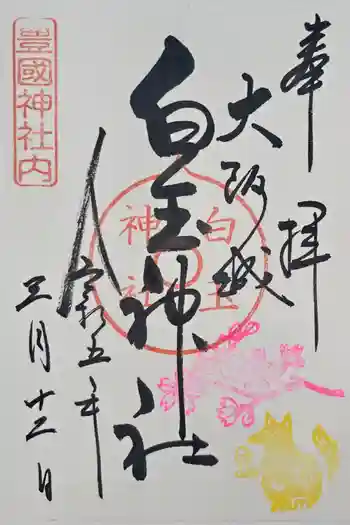 奉拝
大阪城
白玉神社
令和五年
三月十二日
豊國神社内
白玉
神社